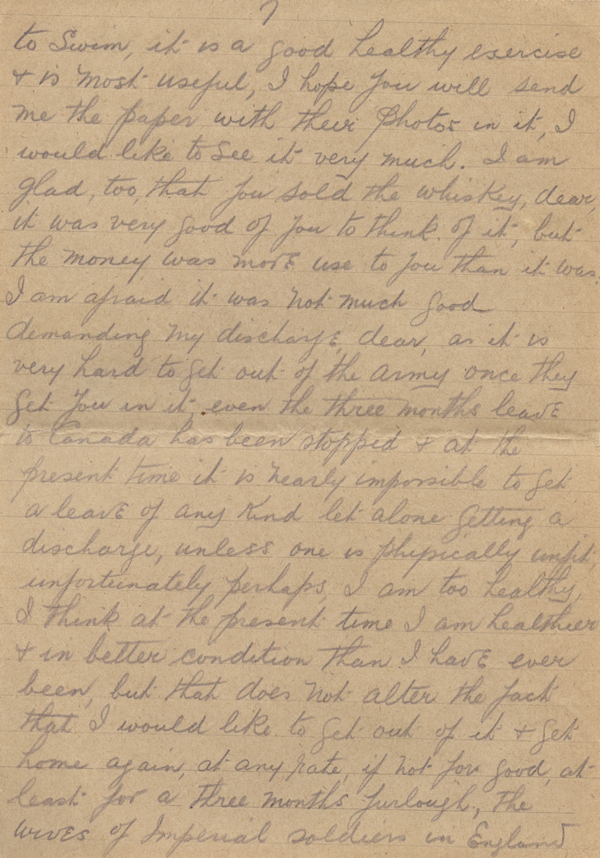 7
to Swim, it is a good healthy exercise
& is most useful, I hope you will send
me the paper with their Photos in it, I
would like to see it very much. I am
glad, too, that you sold the whiskey, dear,
it was very good of you to think of it, but
the money was more use to you than it was.
I am afraid it was not much good
demanding my discharge, dear, as it is
very hard to get out of the army once they
get you in it, even the three months leave
to Canada has been stopped & at the
present time it is nearly impossible to get
a leave of any kind let alone getting a
discharge, unless one is physically unfit,
unfortunately perhaps, I am too healthy,
I think at the present time I am healthier
& in better condition than I have ever
been, but that does not alter the fact
that I would like to get out of it & get
home again, at any rate, if not for good, at
least for a three months furlough, the
wives of Imperial soldiers in England